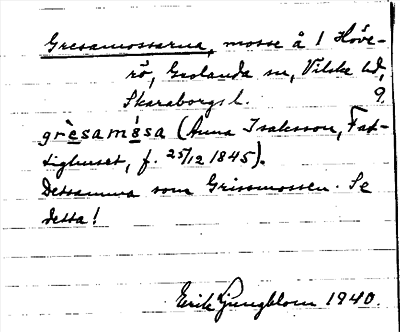 Gresamossarna, mosse å 1 Höve-
rö, Grolanda sn, Vilske hd,
Skaraborgs l. 9.
grèsamåsa (Anna Isaksson, Fat-
tighuset, f. 25/12 1845).
Detsamma som Grissmossen. Se
detta!
Erik Ljungblom 1940.